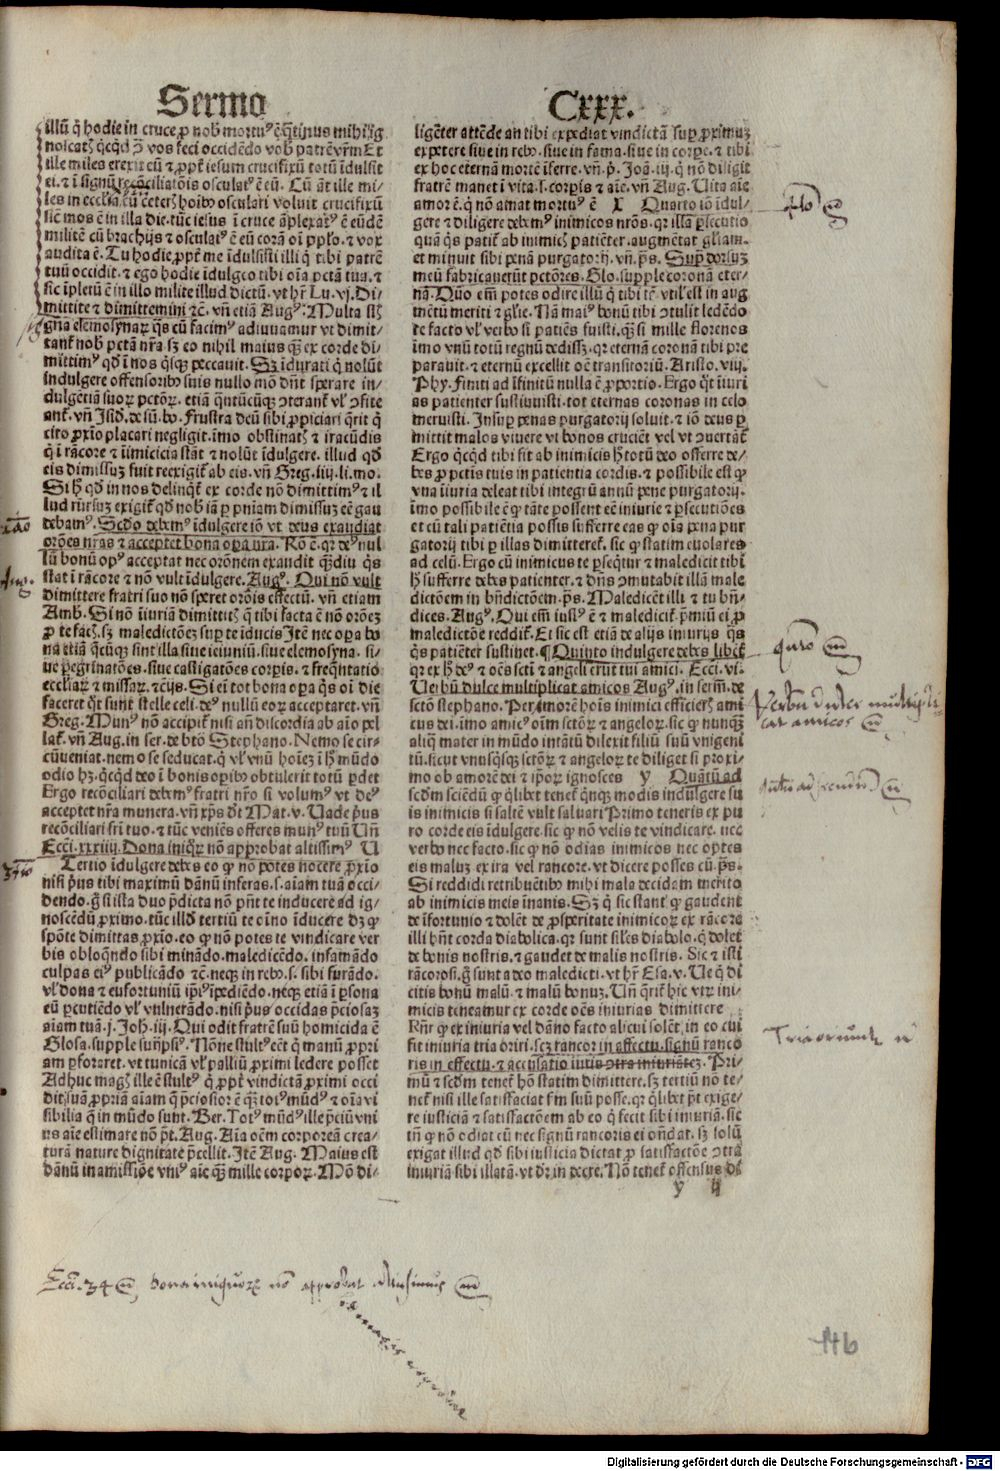 Sermo
CXXX.
illū q̄ hodie in cruce ꝓ nob̄ mortuꝰ ē qtinus mihi ig
noscatꝭ qcqd ꝯ vos feci occidēdo vob̄ patrē vr̄m Et
ille miles erexit eū ⁊ ꝓpt̄ iesum crucifixū totū īdulsit
ei. ⁊ ī signū recōciliatōis osculatꝰ ē eū. Cū āt ille mi/
les in ecclia, cū ceteꝭ hoībꝰ osculari voluit crucifixū
sic mos ē in illa die. tūc iesus ī cruce āplexatꝰ ē eūdē
militē cū brachijs ⁊ osculatꝰ ē eū corā oī pplo. ⁊ vox
audita ē. Tu hodie ꝓpt̄ me īdulsisti illi q̄ tibi patrē
tuū occidit. ⁊ ego hodie īdulgeo tibi oīa pctā tua. ⁊
sic īpletū ē in illo milite illud dictū. vt hr̄ Lu. vj. Di/
mittite ⁊ dimittemini ⁊c̄. vn̄ etiā Augꝰ. Multa sūt
gn̄a elemosynaꝝ qs cū facimꝰ adiuuamur vt dimit/
tant̄ nob̄ pctā nr̄a sꝫ eo nihil maius qꝫ ex corde di/
mittimꝰ qd ī nos qsqꝫ peccauit. Sꝫ īdurati q̄ nolūt
indulgere offensoribꝰ suis nullo mō dn̄t sperare in/
dulgētiā suoꝝ pctoꝝ. etiā qntūcūqꝫ ꝯterant̄ vl̓ ꝯfite
ant̄. vn̄ Isid. de sū. bo. Frustra deū sibi ꝓpiciari qrit q̄
cito ꝓxīo placari negligit. īmo obstinatꝭ ⁊ iracūdis
q̄ ī rācore ⁊ inimicicia stāt ⁊ nolūt īdulgere. illud qd
eis dimissuꝫ fuit reexigit̄ ab eis. vn̄ Greg. iiij. li. mo.
Si ħ qd in nos delinqt̄ ex corde nō dimittimꝰ ⁊ il
lud rursuꝫ exigit̄ qd nob̄ iā ꝑ pniam dimissuꝫ eē gau
debamꝰ. Scdo debemꝰ īdulgere iō vt deus exaudiat
orōes nr̄as ⁊ acceptet bona oꝑa nr̄a. Rō ē. qꝛ deꝰ nul
lū bonū opꝰ acceptat nec orōnem exaudit qꝫdiu qs
stat ī rācore ⁊ nō vult īdulgere. Augꝰ. Qui nō vult
dimittere fratri suo nō speret orōis effectū. vn̄ etiam
Amb. Si nō iniuriā dimittitꝭ q̄ tibi facta ē nō orōeꝫ
ꝓ te facꝭ. sꝫ maledictōeꝫ suꝑ te īducis Itē nec oꝑa bo
na etiā qcūqꝫ sint illa siue ieiuniū. siue elemosyna. si/
ue ꝑegrinatōes. siue castigatōes corꝑis. ⁊ freqntatio
eccliaꝝ ⁊ missaꝝ. ⁊ceijs. Si ei tot bona oꝑa qs oī die
faceret qt sunt stelle celi. deꝰ nullū eoꝝ acceptaret. vn̄
Greg. Munꝰ nō accipit̄ nisi an̄ discordia ab aīo pel
lat̄. vn̄ Aug. in ser. de btō Stephano. Nemo se cir/
cūueniat. nemo se seducat. q̄ vl̓ vnū hoīeꝫ ī ħ mūdo
odio hꝫ. qcqd deo ī bonis oꝑibꝰ obtulerit totū ꝑdet
Ergo recōciliari debemꝰ fratri nr̄o si volumꝰ vt deꝰ
acceptet nr̄a munera. vn̄ xp̄s dt̄ Mat. v. Uade pꝰus
recōciliari fr̄i tuo. ⁊ tūc veniēs offeres munꝰ tuū Un̄
Ecci. xxxiiij. Dona iniqꝝ nō approbat altissimꝰ U
Tertio īdulgere debes eo ꝙ nō potes nocere ꝓxīo
nisi pꝰus tibi maximū dānū inferas. s. aīam tuā occi/
dendo. g̊ si ista duo pdicta nō pn̄t te inducere ad ig/
noscēdū ꝓximo. tūc illd tertiū te oīno īducere dꝫ ꝙ
spōte dimittas ꝓxīo. eo ꝙ nō potes te vindicare ver
bis obloqndo sibi minādo. maledicēdo. infamādo
culpas eiꝰ publicādo ⁊c̄. neqꝫ in rebꝰ. s. sibi furādo.
vl̓ dona ⁊ eufortuniū ip̄iꝰ īpediēdo. neqꝫ etiā ī ꝑsona
eū ꝑcutiēdo vl̓ vulnerādo. nisi pꝰus occidas pciosaꝫ
aīam tuā. j. Joh. iij. Qui odit fratrē suū homicida ē
Glosa. supple sūīpsiꝰ. Nōne stultꝰ eēt q̄ manū ꝓpri
am ꝑforaret. vt tunicā vl̓ palliū ꝓximi ledere posset
Adhuc magꝭ ille ē stultꝰ q̄ ꝓpt̄ vindictā ꝓximi occi
dit suā ꝓpriā aīam q̄ pciosior ē qꝫ totꝰ mūdꝰ ⁊ oīa vi
sibilia q̄ in mūdo sunt. Ber. Totꝰ mūdꝰ ille pciū vni
us aīe estimare nō pt̄. Aug. Aīa oēm corporeā crea/
turā nature dignitate pcellit. Itē Aug. Maius est
dānū in amissiōe vniꝰ aīe qꝫ mille corpoꝝ. Mō di/
ligēter attēde an tibi expediat vindictā suꝑ ꝓximuꝫ
expetere siue in rebꝰ. siue in fama. siue in corꝑe. ⁊ tibi
ex hoc eternā mortē īferre. vn̄. p. Joā. iij. q̄ nō diligit
fratrē manet ī vita. s. corꝑis ⁊ aīe. vn̄ Aug. Uita aīe
amor ē. q̄ nō amat mortuꝰ ē X Quarto iō īdul/
gere ⁊ diligere debemꝰ inimicos nr̄os. qꝛ illā ꝑsecutio
quā qs patit̄ ab inimicꝭ patiēter. augmētat gl̓iam.
et minuit sibi penā purgatorij. vn̄. ps. Supꝛ dorsuꝫ
meū fabricauerūt pctōres. Glo. supple coronā eter/
nā. Quō em̄ potes odire illū q̄ tibi tm̄. vtil̓ est in aug
mētū meriti ⁊ gl̓ie. Nā maiꝰ bonū tibi ꝯtulit ledēdo
te facto vl̓ verbo si patiēs fuisti. qꝫ si mille florenos
īmo vnū totū regnū dedissꝫ. qꝛ eternā coronā tibi pre
parauit. ⁊ eternū excellit oē transitoriū. Aristo. viij.
Phy. Finiti ad īfinitū nulla ē ꝓportio. Ergo qt īiuri
as patienter sustinuisti. tot eternas coronas in celo
meruisti. Insuꝑ penas purgatorij soluit. ⁊ iō deus ꝑ
mittit malos viuere vt bonos cruciēt vel vt ꝯuertāt̄
Ergo qcqd tibi fit ab inimicis ħ totū deo offerre de/
bes ꝓ pctis tuis in patientia cordis. ⁊ possibile est ꝙ
vna īiuria deleat tibi integrū annū pene purgatorij.
īmo possibile ē ꝙ tāte possent eē iniurie ⁊ ꝑsecutiōes
et cū tali patiētia possis sufferre eas ꝙ oīa pena pur
gatorij tibi ꝑ illas dimitteret̄. sic ꝙ statim euolares
ad celū. Ergo cū inimicus te ꝑseqtur ⁊ maledicit tibi
ħ sufferre debes patienter. ⁊ dn̄s ꝯmutabit illā male
dictōem in bn̄dictōem. ps. Maledicēt illi ⁊ tu bn̄/
dices. Augꝰ. Qui em̄ iustꝰ ē ⁊ maledicit̄. pmiū ei ꝓ
maledictōe reddit̄. Et sic est etiā de alijs iniurijs qs
qs patiēter sustinet. ¶ Quinto indulgere debes libēt̄
qꝛ ex ħ deꝰ ⁊ oēs scti ⁊ angeli erūt tui amici. Ecci. vi.
Uerbū dulce multiplicat amicos Augꝰ. in serm̄. de
sctō stephano. Per amorē hoīs inimici efficierꝭ ami
cus dei. īmo amicꝰ oīm sctoꝝ ⁊ angeloꝝ. sic ꝙ nunqꝫ
aliq̄ mater in mūdo intātū dilexit filiū suū vnigeni
tū. sicut vnusqsqꝫ sctoꝝ ⁊ angeloꝝ te diliget si proxi/
mo ob amorē dei ⁊ ip̄oꝝ ignosces y Quātū ad
scdm sciēdū ꝙ qlibet tenet̄ qnqꝫ modis indulgere su
is inimicis si saltē vult saluari Primo teneris ex pu
ro corde eis īdulgere. sic ꝙ nō velis te vindicare. nec
verbo nec facto. sic ꝙ nō odias inimicos nec optes
eis maluꝫ ex ira vel rancore. vt dicere posses cū. ps.
Si reddidi retribuētibꝰ mihi mala decidam merito
ab inimicis meis inanis. Sꝫ q̄ sic stant ꝙ gaudent
de īfortunio ⁊ dolēt de ꝓsperitate inimicoꝝ ex rācore
illi hn̄t corda diabolica. qꝛ sunt sil̓es diabolo. q̄ dolet
de bonis nostris. ⁊ gaudet de malis nostris. Sic ⁊ isti
rācorosi. g̊ sunt a deo maledicti. vt hr̄ Esa. v. Ue q̄ di
citis bonū malū. ⁊ malū bonuꝫ. Un̄ qrit̄ hic vtꝝ ini/
micis teneamur ex corde oēs iniurias dimittere
Rn̄r ꝙ ex iniuria vel dāno facto alicui solēt. in eo cui
fit iniuria tria oriri. scꝫ rancor in affectu. signū ranco
ris in effectu. ⁊ accusatio iuris ꝯtra iniuriāteꝫ. Pri/
mū ⁊ scdm tenet̄ hō statim dimittere. sꝫ tertiū nō te/
net̄ nisi ille satisfaciat scdm suū posse. qꝛ qlibet pt̄ exige/
re iusticiā ⁊ satisfactōem ab eo q̄ fecit sibi iniuriā. sic
tn̄ ꝙ nō odiat eū nec signū rancoris ei on̄dat. sꝫ solū
exigat illud qd sibi iusticia dictat ꝓ satisfactōe ꝯtra
iniuriā sibi illatā. vt dr̄ in decre. Nō tenet̄ offensus ds̄
y ij
Verbū dulce multipli-
cat amicos
Ecci. 34 Dona iniquorū nō approbat altissimus
146
Digitalisierung gefördert durch die Deutsche Forschungsgemeinschaft - DFG